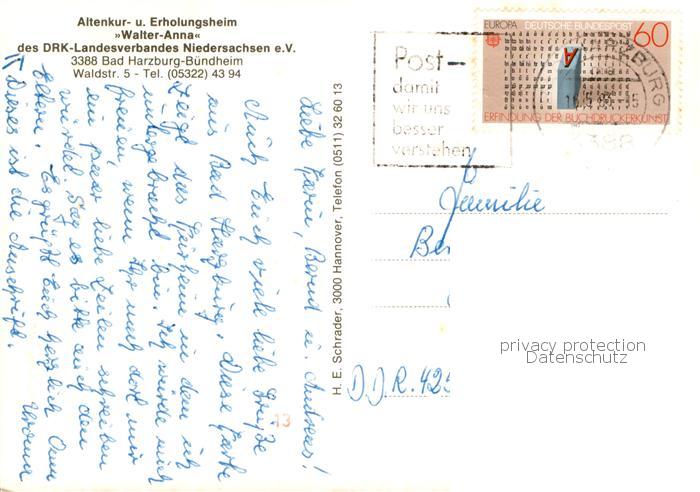 Altenkur- u. Erholungsheim
»Walter-Anna«
des DRK-Landesverbandes Niedersachsen e.V.
3388 Bad Harzburg-Bündheim
Waldstr. 5 - Tel. (05322) 43 94
Liebe Karin, Bernd u. Andreas!
Auch Euch viele liebe Grüße
aus Bad Harzburg. Diese Karte
zeigt das Heim in dem ich
untergebracht bin. Ich würde mich
freuen, wenn Ihr nach dort mir
ein paar liebe Zeilen schreiben
würdet. Sag es bitte auch den
Eltern. Es grüßt Euch herzlich Oma
Dieses ist die Anschrift.
H. E. Schrader, 3000 Hannover, Telefon (0511) 32 60 13
13
Post-
damit
wir uns
besser
verstehen
EUROPA DEUTSCHE BUNDESPOST 60
A
ERFINDUNG DER BUCHDRUCKERKUNST
3388
Familie
Be
D.D.R. 42
privacy protection
Datenschutz